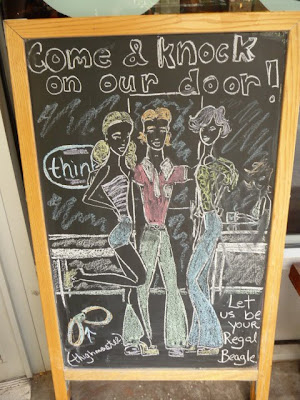 Come & knock
on our door!
thin
Let
us be
your
Regal
Beagle
(thighmaster)